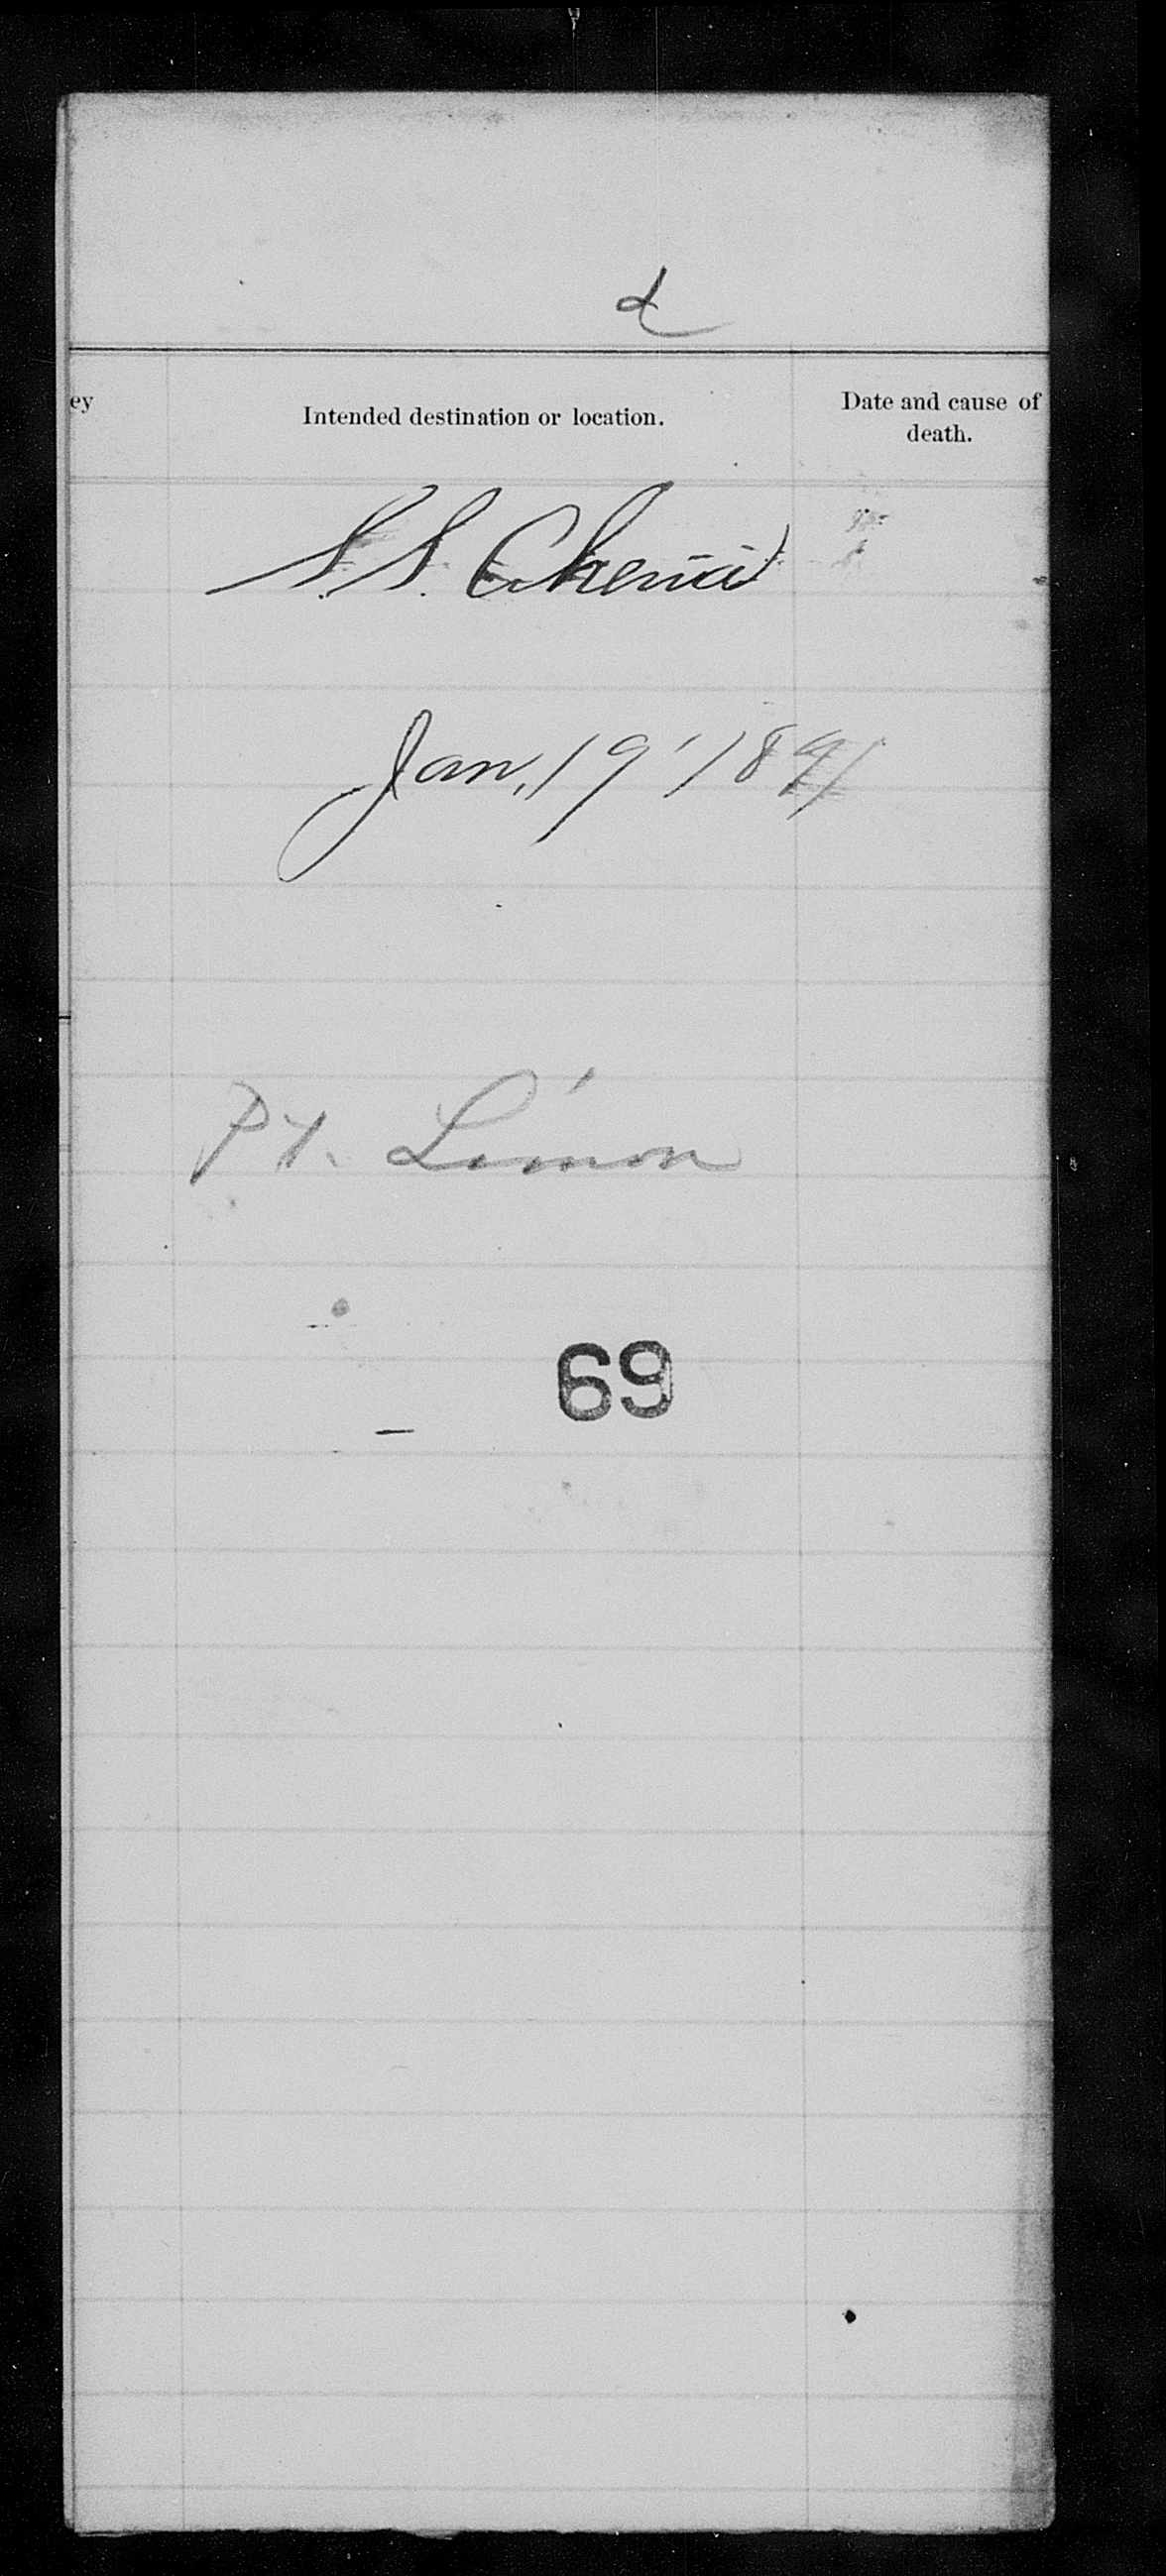 d
ey
Intended destination or location.
Date and cause of
death.
S.S.
Jan. 19' 1891
Pt. Limon
69